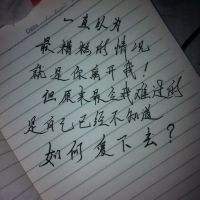 一直认为
最糟糕的情况
就是你离开我！
但原来最令我难过的
是自己已经不知道
如何爱下去？